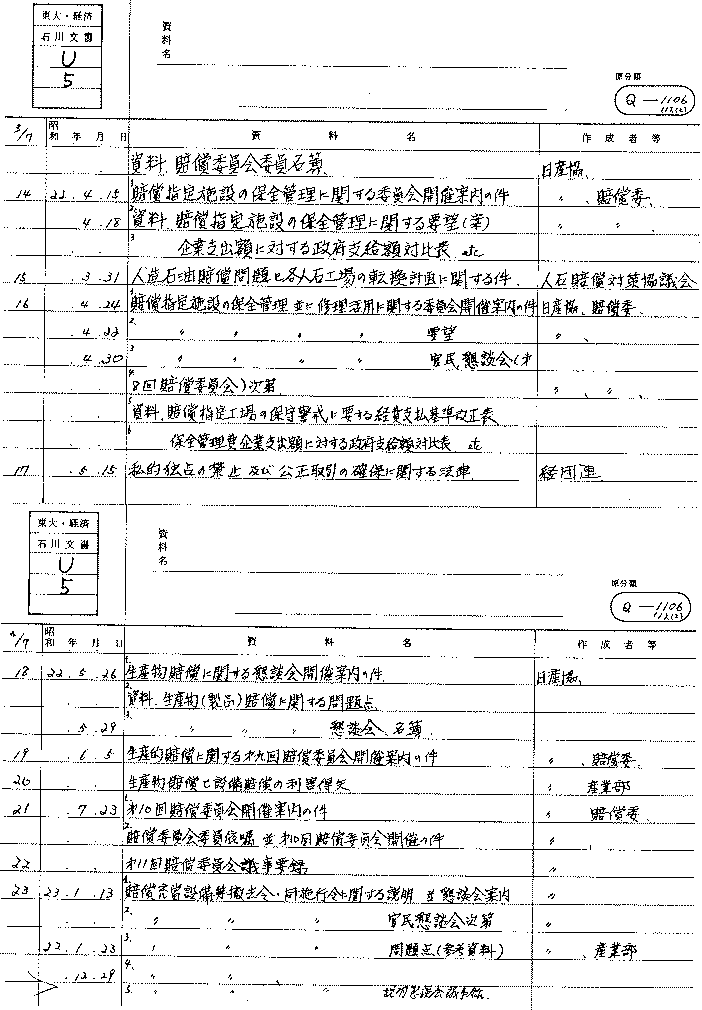 東大・経済
石川文書
U
5
資料名
原分類
Q-1106
3/7 昭和 年 月 日 資料名 作成者等
資料 賠償委員会委員名簿 日産協、
14 22. 4. 15 1. 賠償指定施設の保全管理に関する委員会開催案内の件 〃 、賠償委、
4. 18 2. 資料 賠償指定施設の保全管理に関する要望(案) 〃 〃
3. 企業支出額に対する政府支給額対比表 etc
15 . 3. 31 人造石油賠償問題と各人石工場の転換計画に関する件、 人石賠償対策協議会
16 . 4. 24 1. 賠償指定施設の保全管理並に修理活用に関する委員会開催案内の件 日産協、賠償委、
. 4. 23 2. 〃 〃 〃 〃 要望 〃 、
. 4. 30 3. 〃 〃 〃 〃 官民懇談会(才
4. 8回賠償委員会)次第 〃 、 〃 、
5. 資料、賠償指定工場の保守警戒に要する経費支払基準改正表
6. 保全管理費企業支出額に対する政府支給額対比表 etc
17 . 5. 15 私的独占の禁止及び公正取引の確保に関する法律 経団連
東大・経済
石川文書
U
5
資料名
原分類
Q-1106
4/7 昭和 年 月 日 資料名 作成者等
18 22. 5. 26 1. 生産物賠償に関する懇談会開催案内の件、 日産協、
2. 資料、生産物(製品)賠償に関する問題点
5. 29 3. 〃 〃 〃 懇談会、名簿
19 . 6. 5 生産的賠償に関する才九回賠償委員会開催案内の件 〃 、賠償委、
20 生産物賠償と設備賠償の利害得失 〃 産業部
21 . 7. 23 1. 才10回賠償委員会開催案内の件 〃 賠償委、
2. 賠償委員会委員依嘱並才10回賠償委員会開催の件 〃
22 才11回賠償委員会議事要録 〃
23 23. 1. 13 1. 賠償充当設備等撤去令・同施行令に関する説明並懇談会案内 〃
2. 〃 〃 〃 官民懇談会次第 〃
22. 1. 23 3. 〃 〃 〃 問題点(参考資料) 〃 、産業部
. 12. 29 4. 〃 〃 、
5. 〃 〃 〃